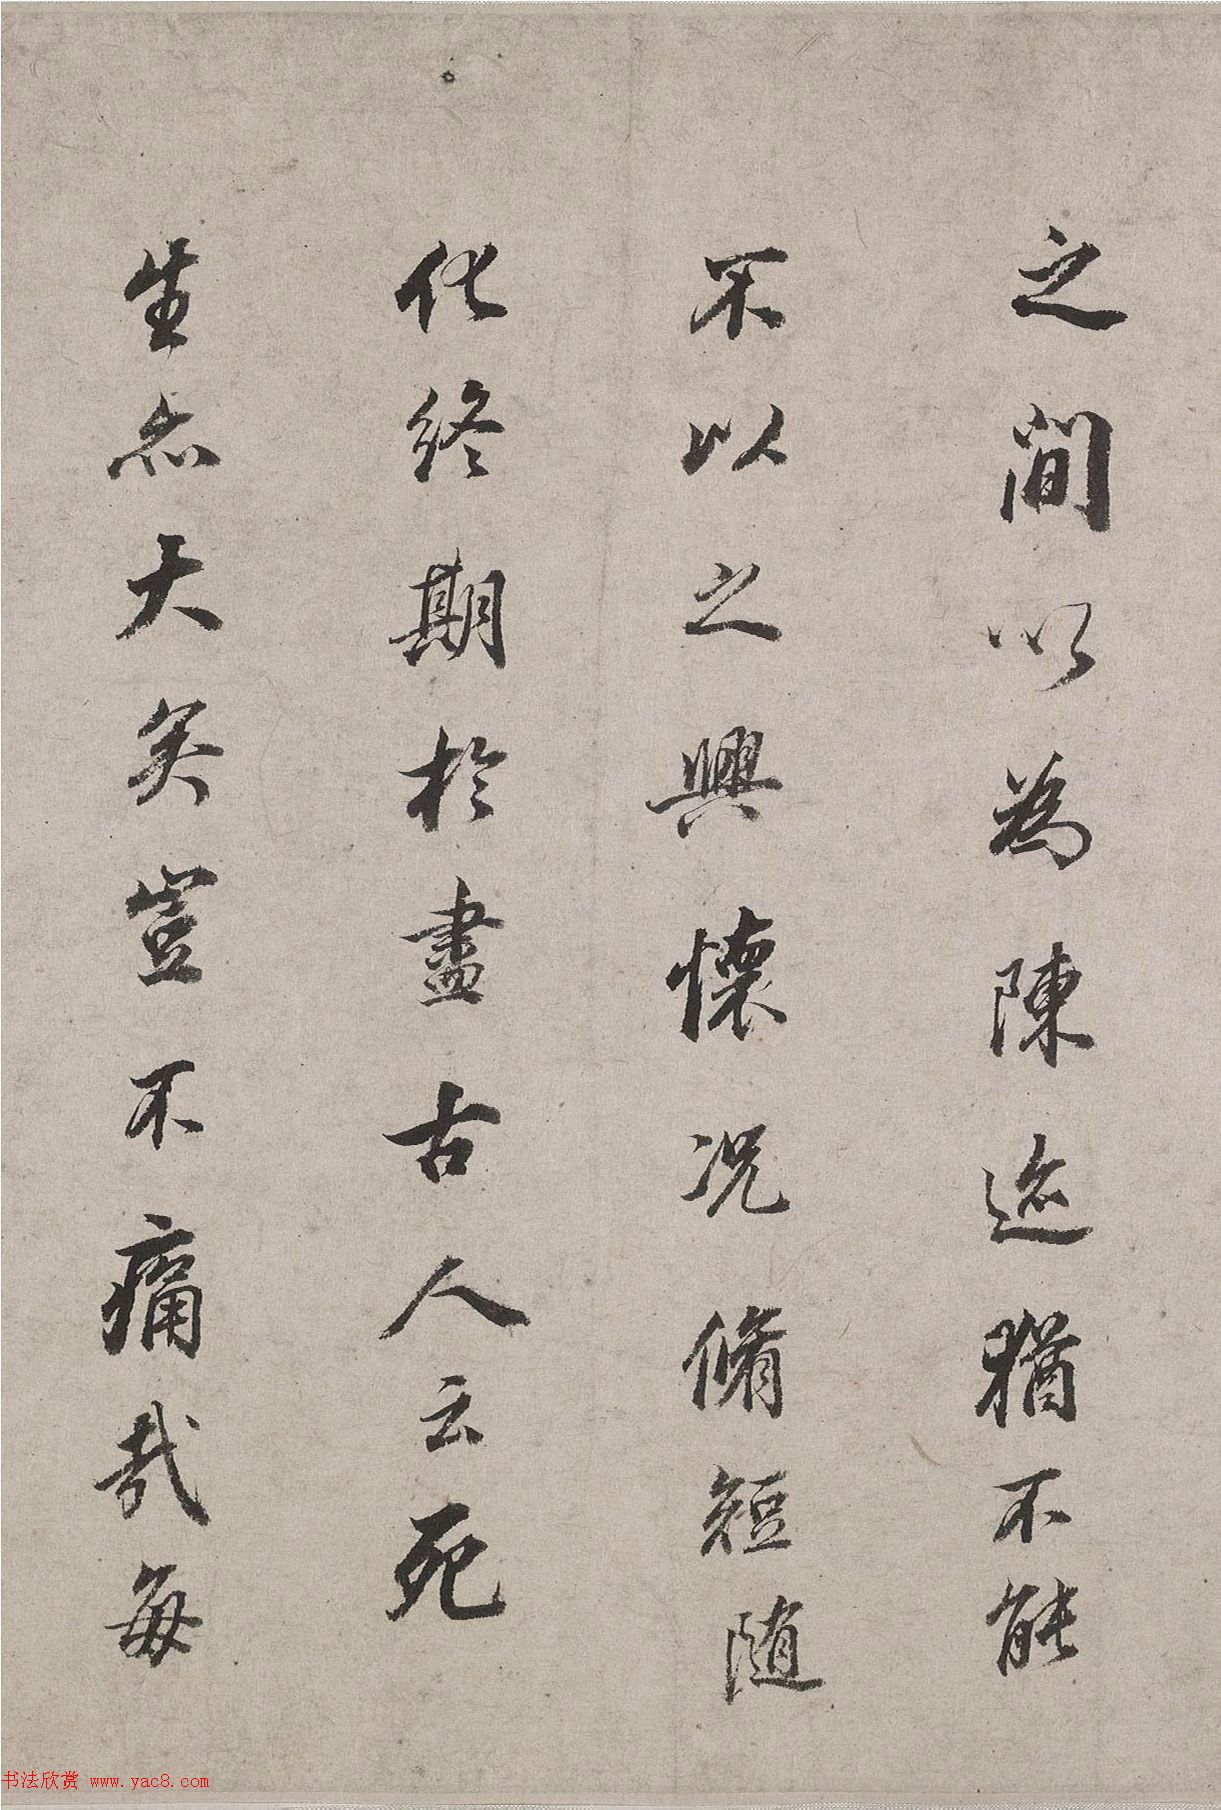 之間以為陳迹猶不能
不以之興懷况脩短隨
化終期於盡古人云死
生亦大矣豈不痛哉每
书法欣赏 www.yac8.com